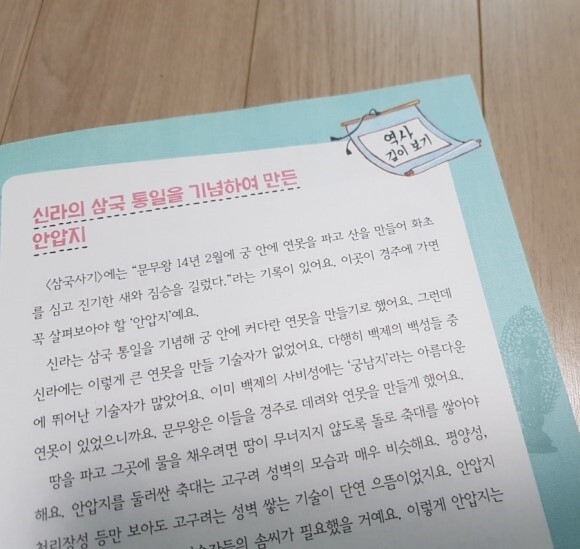 역사
깊이 보기
신라의 삼국 통일을 기념하여 만든
안압지
《삼국사기》에는 “문무왕 14년 2월에 궁 안에 연못을 파고 산을 만들어 화초
를 심고 진기한 새와 짐승을 길렀다.”라는 기록이 있어요. 이곳이 경주에 가면
꼭 살펴보아야 할 ‘안압지’예요.
신라는 삼국 통일을 기념해 궁 안에 커다란 연못을 만들기로 했어요. 그런데
신라에는 이렇게 큰 연못을 만들 기술자가 없었어요. 다행히 백제의 백성들 중
에 뛰어난 기술자가 많았어요. 이미 백제의 사비성에는 ‘궁남지’라는 아름다운
연못이 있었으니까요. 문무왕은 이들을 경주로 데려와 연못을 만들게 했어요.
땅을 파고 그곳에 물을 채우려면 땅이 무너지지 않도록 돌로 축대를 쌓아야
해요. 안압지를 둘러싼 축대는 고구려 성벽의 모습과 매우 비슷해요. 평양성,
천리장성 등만 보아도 고구려는 성벽 쌓는 기술이 단연 으뜸이었지요. 안압지
솜씨가 필요했을 거예요. 이렇게 안압지는